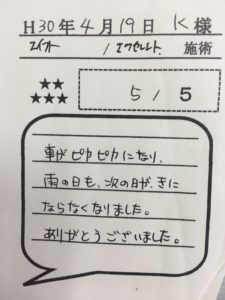 H30年4月19日 K様
エイオー / エクセレント 施術
★★
★★★
5 / 5
車がピカピカになり、
雨の日も、次の日が、きに
ならなくなりました。
ありがとうございました。